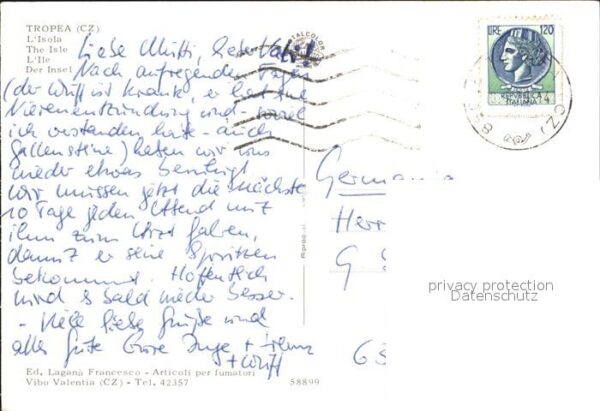 TROPEA (CZ)
L'Isola
The Isle
L'Ile
Der Insel
Liebe Mutti, lieber Vati!
Nach aufregenden Tagen
(der Wuff ist krank, er hat eine
Nierenentzündung und - soviel
ich verstanden habe - auch
Gallensteine) haben wir uns
wieder etwas beruhigt
Wir müssen jetzt die nächsten
10 Tage jeden Abend mit
ihm zum Arzt fahren,
damit er seine Spritzen
bekommt. Hoffentlich
wird es bald wieder besser.
- Viele liebe Grüße und
alles Gute Eure Inge +
+ Wuff
Ed. Laganà Francesco - Articoli per fumatori
Vibo Valentia (CZ) - Tel. 42357
58899
LIRE 120
REPUBBLICA
ITALIANA
(CZ)
Germania
Herr
G.
privacy protection
Datenschutz